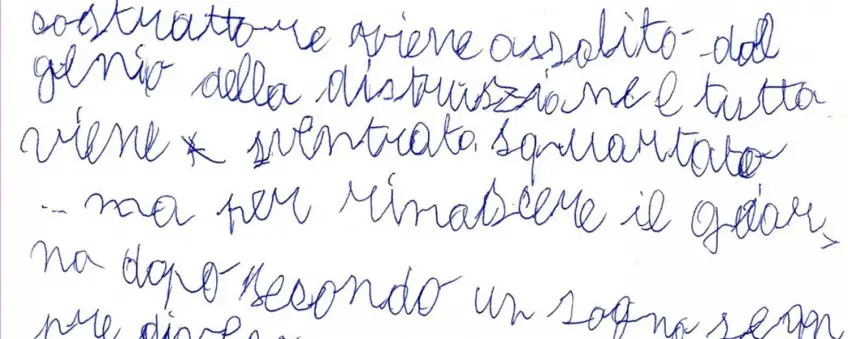 sostrattore viene assalito dal
genio della distruzione e tutto
viene sventrato squartato
.. ma per rinascere il gior,
no dopo secondo un sogno sem
pre diverso